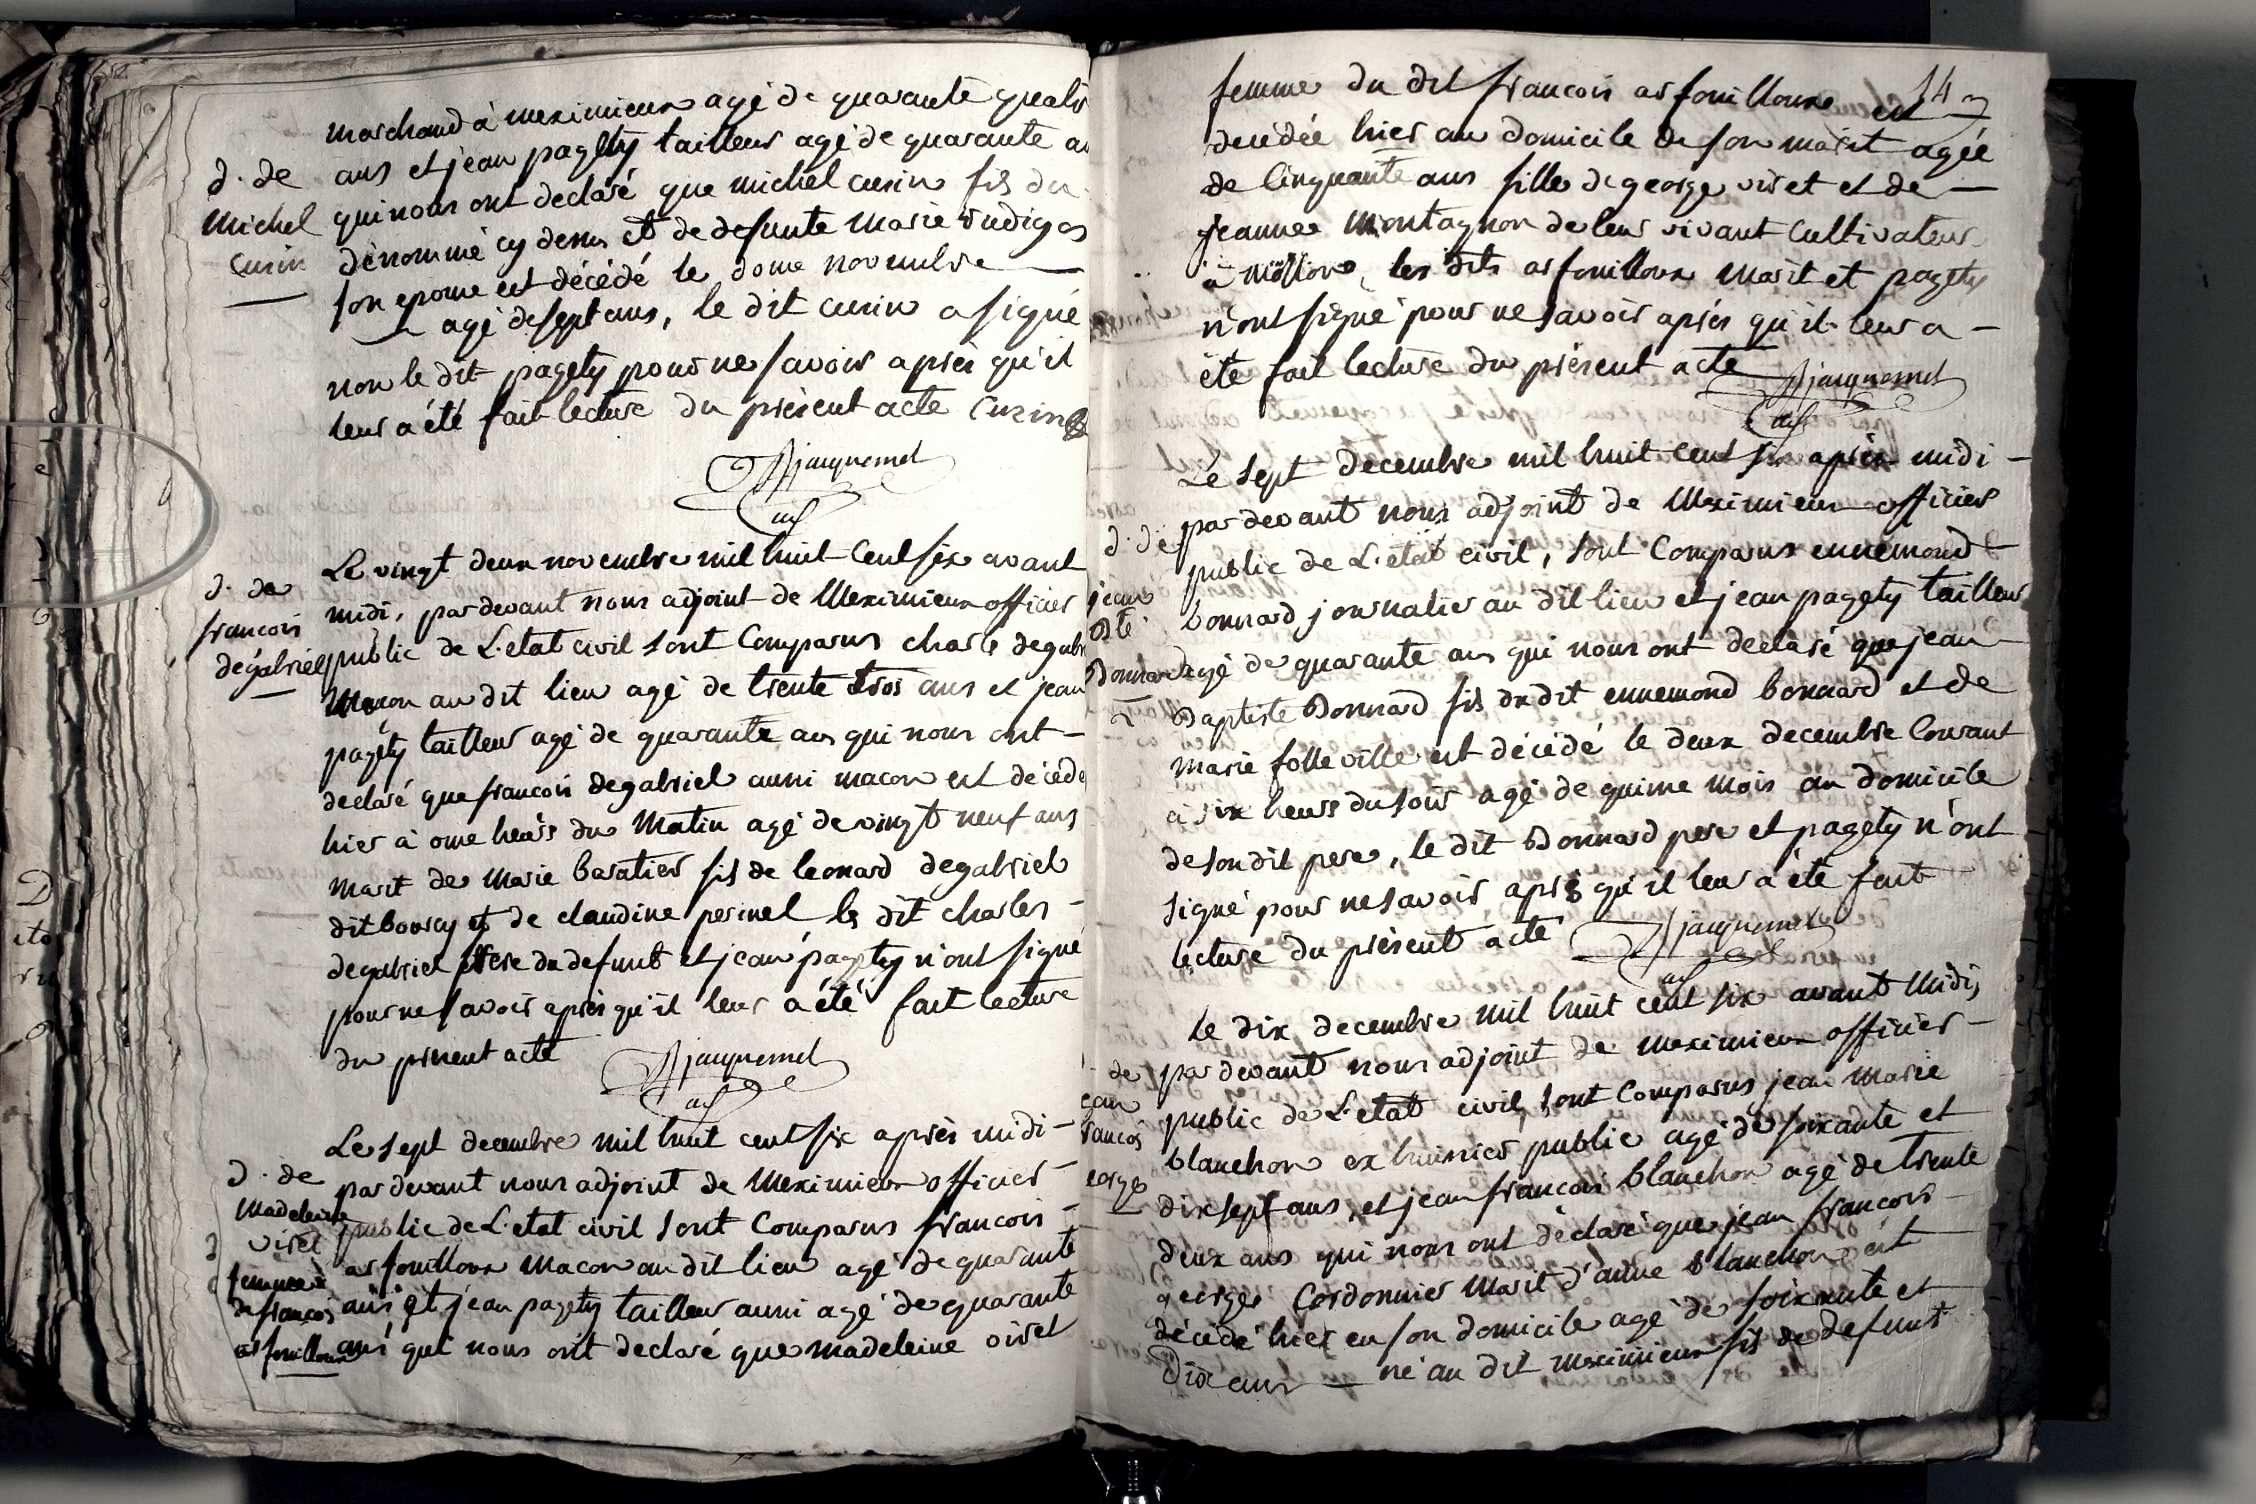 marchand à meximieux agé de quarante quatre
ans et jean pagety tailleur agé de quarante ans
qui nous ont declaré que michel cusin fils du
dénommé cy dessus et de defunte Marie
son epouse est décédé le douze novembre
agé de sept ans, le dit cusin a signé
non le dit pagety pour ne savoir aprés qu'il
leur a été fait lecture du présent acte Cuzin
Jacquemet
adj
d. de
Michel
Cusin
Le vingt deux novembre mil huit cent six avant
midi, pardevant nous adjoint de Meximieux officier
public de L'etat civil sont Comparus charle degabriel
Macon au dit lieu agé de trente trois ans et jean
pagety tailleur agé de quarante ans qui nous ont
declaré que francois degabriel aussi macon est décédé
hier à onze heurs du Matin agé de vingt neuf ans
marit de Marie baratier fils de leonard degabriel
dit bourcy et de claudine perinel le dit charles
degabriel frere du defunt et jean pagety n'ont signé
pour ne savoir aprés qu'il leur a été fait lecture
du présent acte
Jacquemet
adj
d. de
francois
degabriel
Le sept decembre mil huit cent six aprés midi
par devant nous adjoint de Meximieux officier
public de L'etat civil sont Comparus francois
arfouilloux Macon au dit lieu agé de quarante
ans et jean pagety tailleur aussi agé de quarante
ans qui nous ont declaré que madeleine viret
d. de
Madeleine
viret
femme
de francois
arfouilloux
14
femme du dit francois arfouilloux est
decédée hier au domicile de son marit agée
de Cinquante ans fille de george viret et de
jeanne Montagnon de leur vivant Cultivateur
à Mollon, les dits arfouilloux Marit et pagety
n'ont signé pour ne savoir aprés qu'il leur a
été fait lecture du présent acte
Jacquemet
adj
Le sept decembre mil huit cent six aprés midi
par devant nous adjoint de Meximieux officier
public de L'etat civil, sont Comparus ennemond
bonnard journalier au dit lieu et jean pagety tailleur
agé de quarante ans qui nous ont declaré que jean
Baptiste Bonnard fils du dit ennemond bonnard et de
Marie folleville est décédé le deux decembre Courant
à six heurs du soir agé de quinze mois au domicile
de son dit pere, le dit Bonnard pere et pagety n'ont
signé pour ne savoir aprés qu'il leur a été fait
lecture du présent acte
Jacquemet
adj
d. de
jean
bte
Bonnard
Le dix decembre mil huit cent six avant Midi,
par devant nous adjoint de meximieux officier
public de L'etat civil, sont Comparus jean Marie
blanchon ex huissier public agé de soixante et
dix sept ans, et jean francois blanchon agé de trente
deux ans qui nous ont déclaré que jean francois
george Cordonnier Marit d'anne blanchon est
décédé hier en son domicile agé de soixante et
dix ans né au dit meximieux fils de defunt
de
ean
rancois
eorge